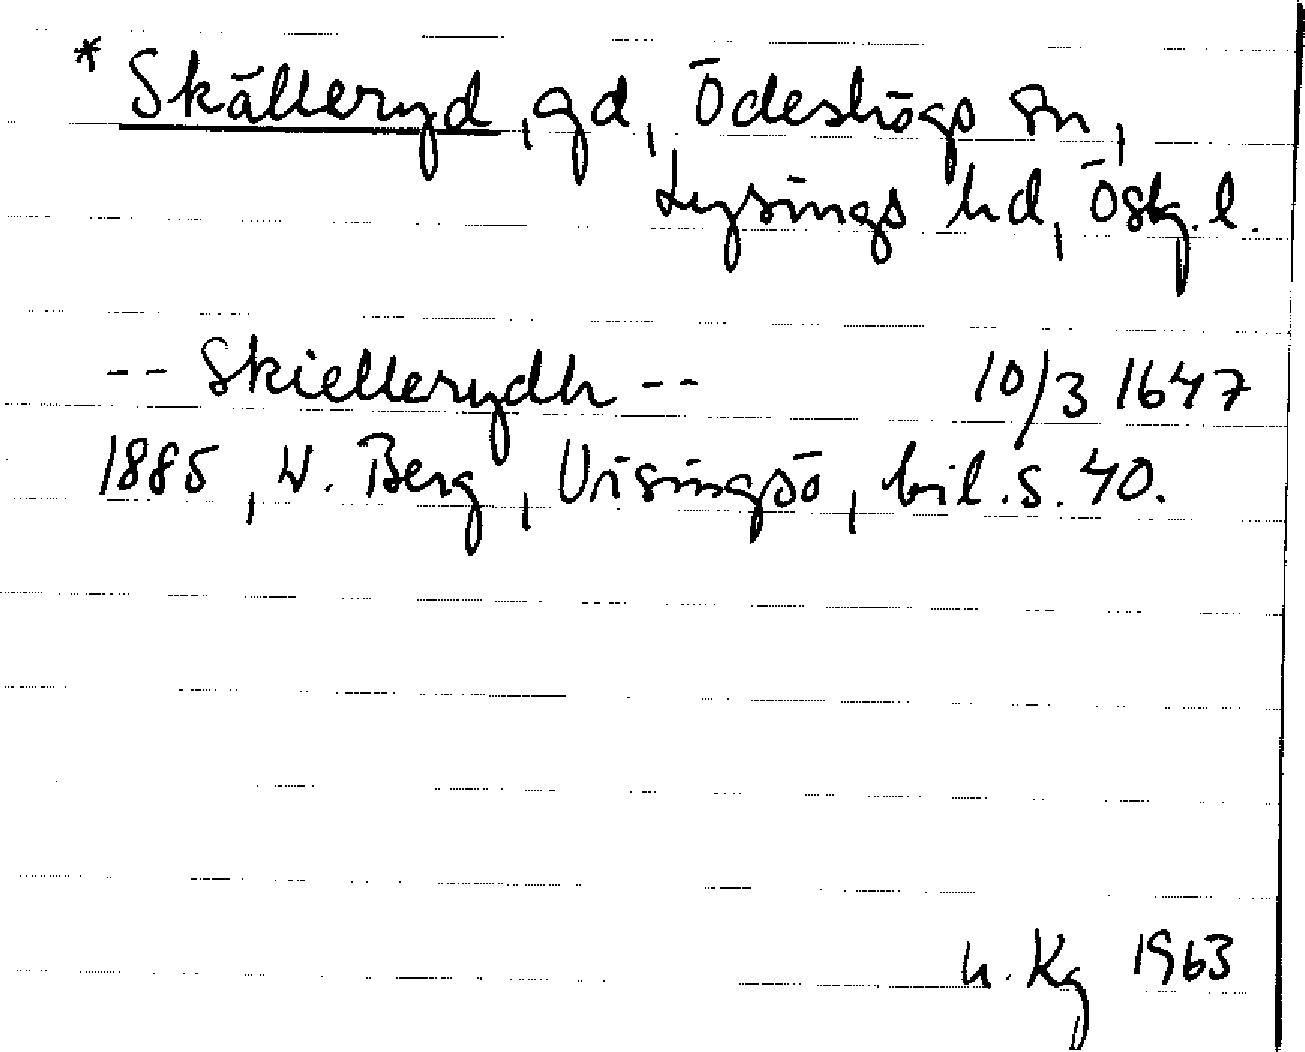 * Skälleryd, gd, Ödeshögs sn,
Lysings hd, Östg. l.
-- Skiellerydh -- 10/3 1647
1885, W. Berg, Visingsö, bil. s. 40.
h. Kg 1963